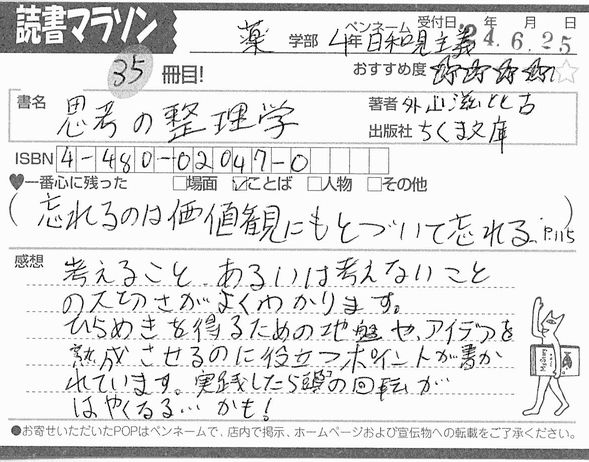 読書マラソン
薬 学部 4年 ペンネーム 日和見主義 受付日 '24.6.25 年 月 日
35冊目! おすすめ度 ☆☆☆☆☆
書名 思考の整理学 著者 外山滋比古
出版社 ちくま文庫
ISBN 4-480-02047-0
♥一番心に残った □場面 ☑ことば □人物 □その他
(忘れるのは価値観にもとづいて忘れる。P.115)
感想 考えること、あるいは考えないこと
の大切さがよくわかります。
ひらめきを得るための地盤や、アイデアを
熟成させるのに役立つポイントが書か
れています。実践したら頭の回転が
はやくなる…かも!
●お寄せいただいたPOPはペンネームで、店内で掲示、ホームページおよび宣伝物への転載をご了承ください。